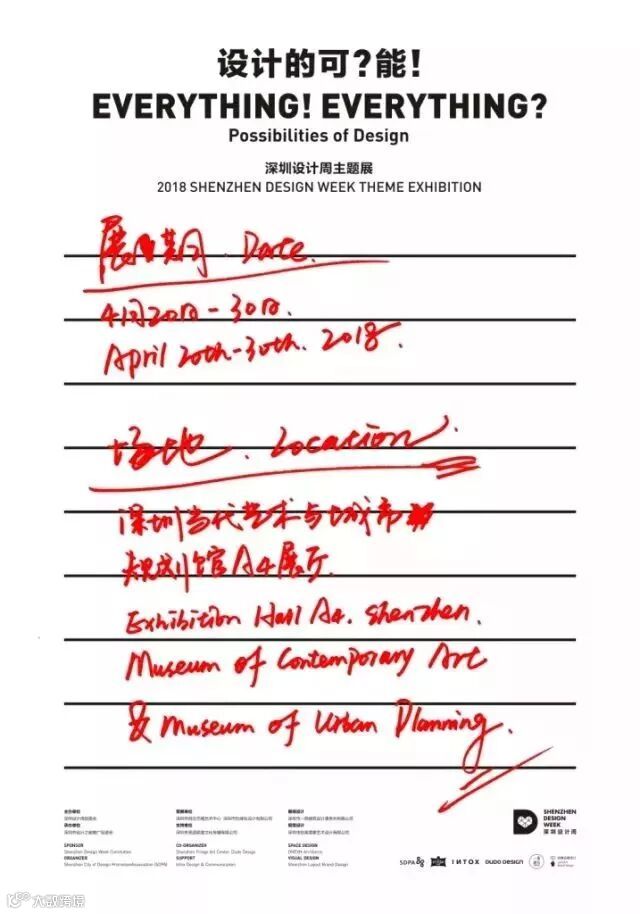 设计的可?能!
EVERYTHING! EVERYTHING?
Possibilities of Design
深圳设计周主题展
2018 SHENZHEN DESIGN WEEK THEME EXHIBITION
展期. Date.
4月20日-30日.
April 20th-30th. 2018.
场地. Location.
深圳当代艺术与城市
规划馆A4展厅
Exhibition Hall A4. Shenzhen.
Museum of Contemporary Art
& Museum of Urban Planning.
主办单位
深圳设计周组委会
承办单位
SPONSOR
Shenzhen Design Week Committee
ORGANIZER
Shenzhen City of Design Promotion Association (SDPA)
支持单位
CO-ORGANIZER
Shenzhen Fringe Art Center, Oudo Design
SUPPORT
Intox Design & Communication
SPACE DESIGN
VISUAL DESIGN
Shenzhen Layout Brand Design
SHENZHEN
DESIGN
WEEK
深圳设计周
SDPA
INTOX
OUDO DESIGN
大数跨境